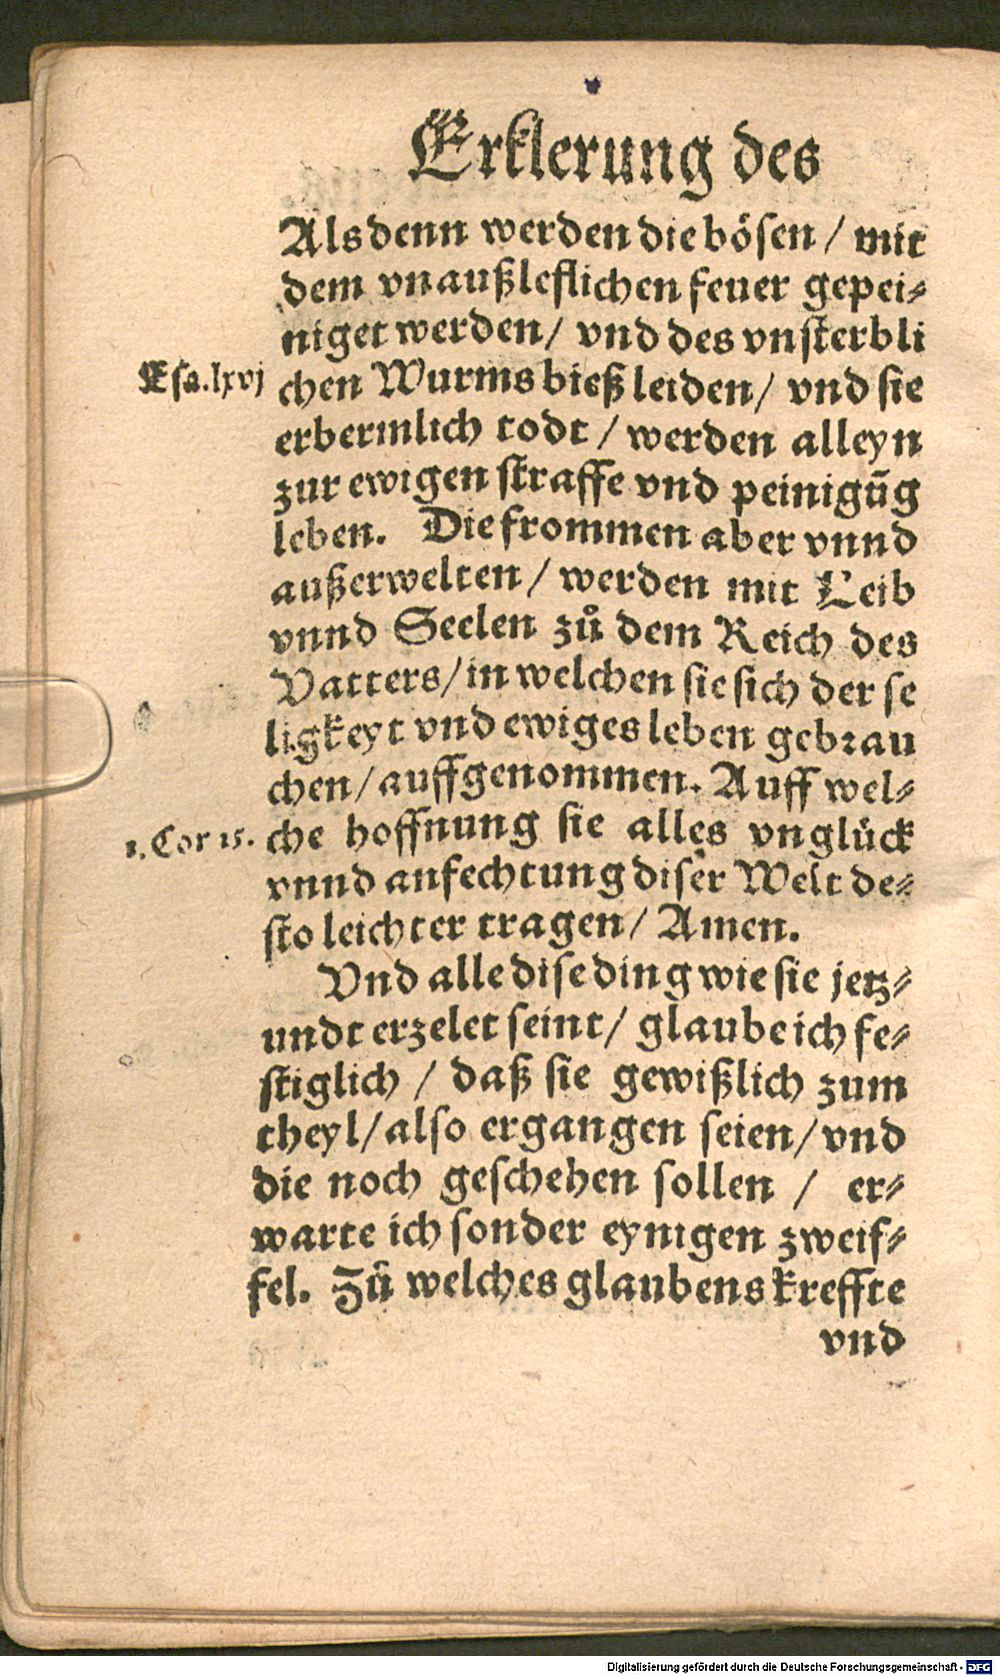 Erklerung des
Als denn werden die bösen / mit
dem vnaußleflichen feuer gepei⸗
niget werden / vnd des vnsterbli
Esa.lxvj
chen Wurms bieß leiden / vnd sie
erbermlich todt / werden alleyn
zur ewigen straffe vnd peinigūg
leben. Die frommen aber vnnd
außerwelten / werden mit Leib
vnnd Seelen zů dem Reich des
Vatters / in welchen sie sich der se
ligkeyt vnd ewiges leben gebrau
chen / auffgenommen. Auff wel⸗
1. Cor 15.
che hoffnung sie alles vnglück
vnnd anfechtung diser Welt de⸗
sto leichter tragen / Amen.
Vnd alle dise ding wie sie jetz⸗
undt erzelet seint / glaube ich fe⸗
stiglich / daß sie gewißlich zum
theyl / also ergangen seien / vnd
die noch geschehen sollen / er⸗
warte ich sonder eynigen zweif⸗
fel. Zů welches glaubens kreffte
vnd
Digitalisierung gefördert durch die Deutsche Forschungsgemeinschaft - DFG